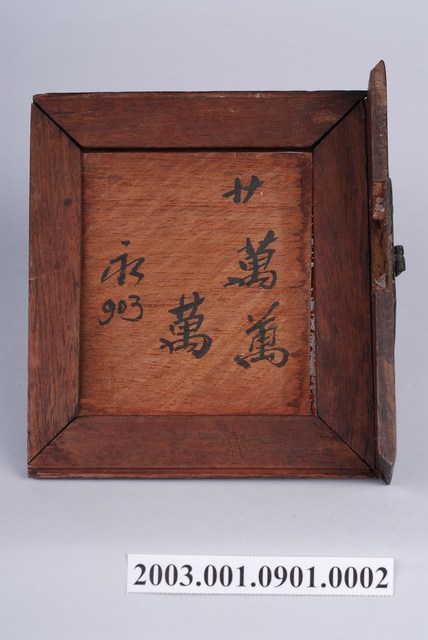 廿萬萬
萬
永
903
2003.001.0901.0002